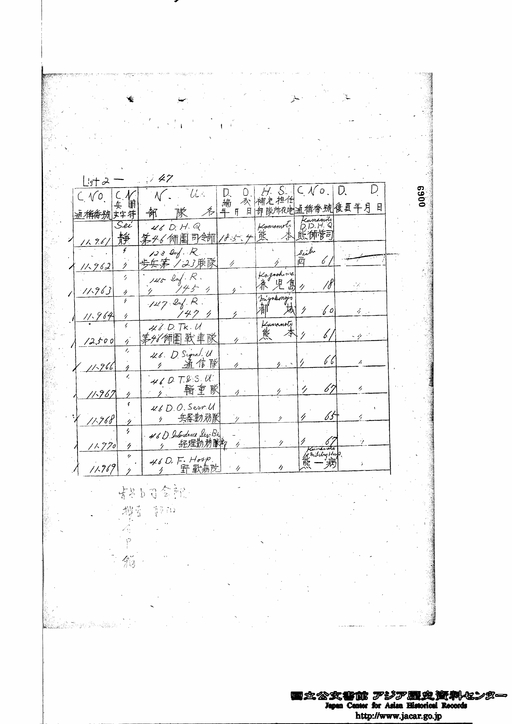 List 2 — 47
C.No. C.N N. U. D. O. H. S. C.No. D. D
通称番号 兵団文字符 部隊名 編成年月日 補充担任部隊所在地 通称番号 復員年月日
Sei 46 D.H.Q Kumamoto D.D.H.Q
11.961 静 第46師団司令部 18.5.4 熊本 熊師管司
123 Inf. R.
11.962 〃 歩兵第123聯隊 〃 西 61 〃
145 Inf. R. Kagoshima
11.963 〃 〃 145 〃 〃 鹿児島 〃 18 〃
147 Inf. R.
11.964 〃 〃 147 〃 〃 都城 〃 60 〃
46 D. Tk. U Kumamoto
12.500 〃 第46師団戦車隊 〃 熊本 〃 61 〃
46. D Signl. U
11.966 〃 〃 通信隊 〃 〃 〃 66 〃
46 D T&S. U
11.967 〃 〃 輜重隊 〃 〃 〃 67 〃
46 D.O. Serv. U
11.968 〃 〃 兵器勤務隊 〃 〃 〃 65 〃
46 D
11.770 〃 〃 経理勤務部 〃 〃 〃 67 〃
46 D. F. Hosp.
11.969 〃 〃 野戦病院 〃 〃 熊一病
0099
国立公文書館 アジア歴史資料センター
Japan Center for Asian Historical Records
http://www.jacar.go.jp